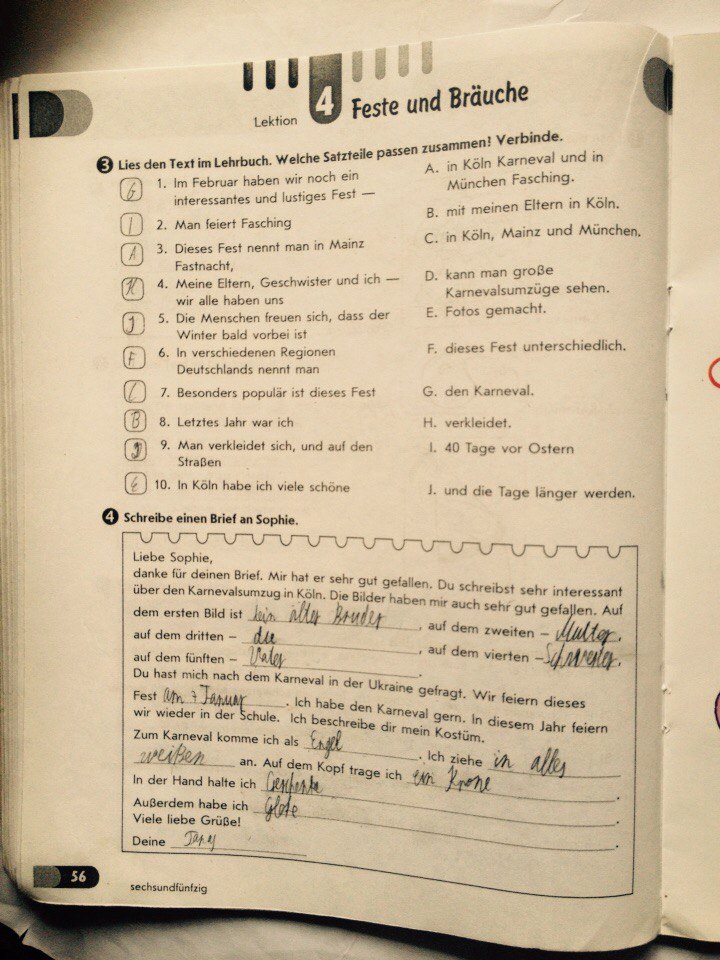 Lektion 4 Feste und Bräuche
3 Lies den Text im Lehrbuch. Welche Satzteile passen zusammen? Verbinde.
G 1. Im Februar haben wir noch ein
interessantes und lustiges Fest —
I 2. Man feiert Fasching
A 3. Dieses Fest nennt man in Mainz
Fastnacht,
H 4. Meine Eltern, Geschwister und ich —
wir alle haben uns
J 5. Die Menschen freuen sich, dass der
Winter bald vorbei ist
F 6. In verschiedenen Regionen
Deutschlands nennt man
C 7. Besonders populär ist dieses Fest
B 8. Letztes Jahr war ich
D 9. Man verkleidet sich, und auf den
Straßen
E 10. In Köln habe ich viele schöne
A. in Köln Karneval und in
München Fasching.
B. mit meinen Eltern in Köln.
C. in Köln, Mainz und München.
D. kann man große
Karnevalsumzüge sehen.
E. Fotos gemacht.
F. dieses Fest unterschiedlich.
G. den Karneval.
H. verkleidet.
I. 40 Tage vor Ostern
J. und die Tage länger werden.
4 Schreibe einen Brief an Sophie.
Liebe Sophie,
danke für deinen Brief. Mir hat er sehr gut gefallen. Du schreibst sehr interessant
über den Karnevalsumzug in Köln. Die Bilder haben mir auch sehr gut gefallen. Auf
dem ersten Bild ist dein älter Bruder, auf dem zweiten – Mutter,
auf dem dritten – die, auf dem vierten – Schwester,
auf dem fünften – Vater.
Du hast mich nach dem Karneval in der Ukraine gefragt. Wir feiern dieses
Fest am 7 Januar. Ich habe den Karneval gern. In diesem Jahr feiern
wir wieder in der Schule. Ich beschreibe dir mein Kostüm.
Zum Karneval komme ich als Engel. Ich ziehe in alles
weißen an. Auf dem Kopf trage ich ein Krone.
In der Hand halte ich .
Außerdem habe ich .
Viele liebe Grüße!
Deine
56
sechsundfünfzig